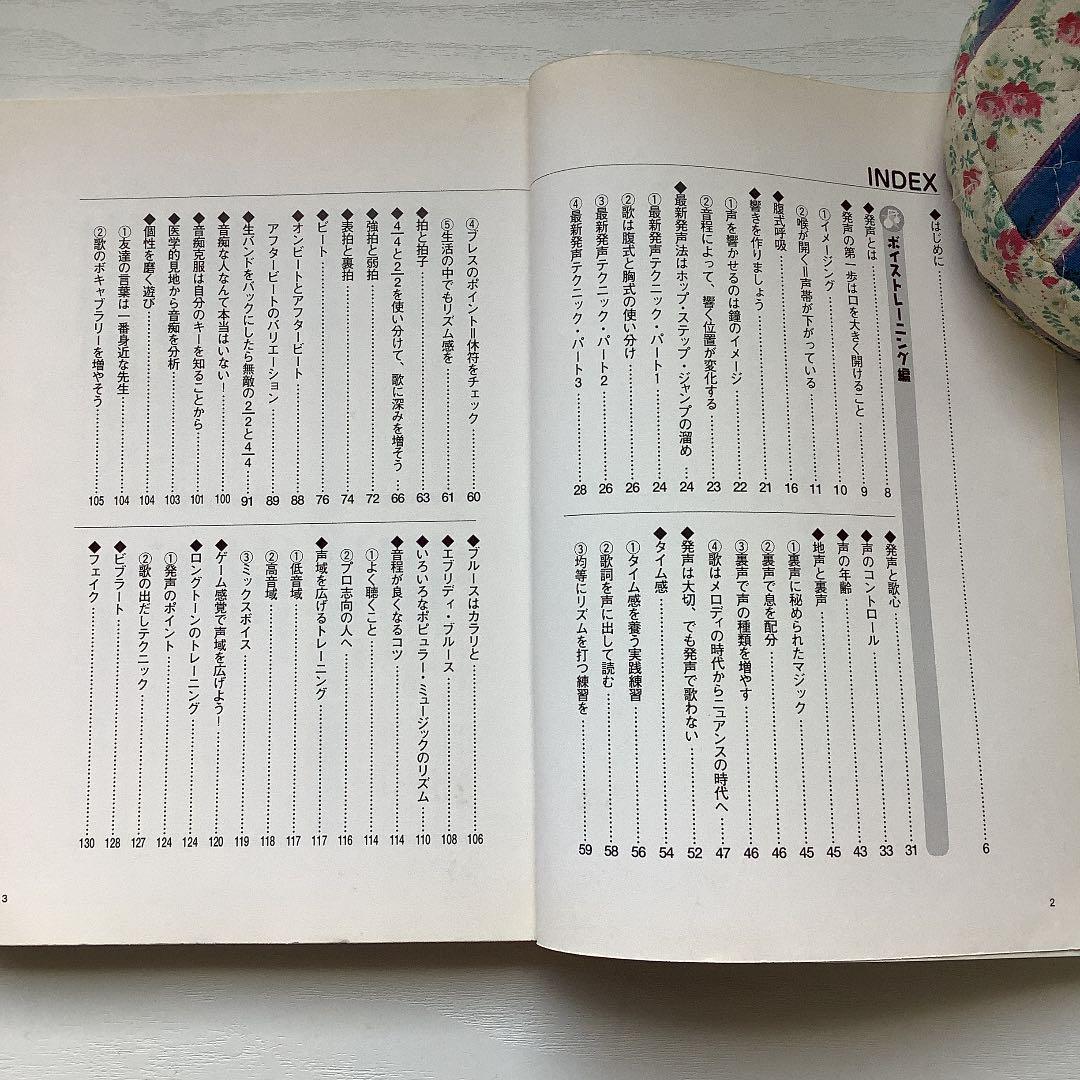 INDEX
◆はじめに……6
ボイストレーニング編
◆発声とは……8
◆発声の第一歩は口を大きく開けること……9
①イメージング……10
②喉が開く＝声帯が下がっている……11
◆腹式呼吸……16
◆響きを作りましょう……21
①声を響かせるのは鐘のイメージ……22
②音程によって、響く位置が変化する……23
◆最新発声法はホップ・ステップ・ジャンプの溜め……24
①最新発声テクニック・パート1……24
②歌は腹式と胸式の使い分け……26
③最新発声テクニック・パート2……26
④最新発声テクニック・パート3……28
◆発声と歌心……31
◆声のコントロール……33
◆声の年齢……43
◆地声と裏声……45
①裏声に秘められたマジック……45
②裏声で息を配分……46
③裏声で声の種類を増やす……46
④歌はメロディの時代からニュアンスの時代へ……47
◆発声は大切、でも発声で歌わない……52
◆タイム感……54
①タイム感を養う実践練習……56
②歌詞を声に出して読む……58
③均等にリズムを打つ練習を……59
2
④ブレスのポイント＝休符をチェック……60
⑤生活の中でもリズム感を……61
◆拍と拍子……63
◆4/4と2/2を使い分けて、歌に深みを増そう……66
◆強拍と弱拍……72
◆表拍と裏拍……74
◆ビート……76
◆オンビートとアフタービート……88
アフタービートのバリエーション……89
◆生バンドをバックにしたら無敵の2/2と4/4……91
◆音痴な人なんて本当はいない……100
◆音痴克服は自分のキーを知ることから……101
◆医学的見地から音痴を分析……103
◆個性を磨く遊び……104
①友達の言葉は一番身近な先生……104
②歌のボキャブラリーを増やそう……105
◆ブルースはカラリと……106
◆エブリディ・ブルース……108
◆いろいろなポピュラー・ミュージックのリズム……110
◆音程が良くなるコツ……114
①よく聴くこと……114
②プロ志向の人へ……116
◆声域を広げるトレーニング……117
①低音域……117
②高音域……118
③ミックスボイス……119
◆ゲーム感覚で声域を広げよう！……120
◆ロングトーンのトレーニング……124
①発声のポイント……124
②歌の出だしテクニック……127
◆ビブラート……128
◆フェイク……130
3